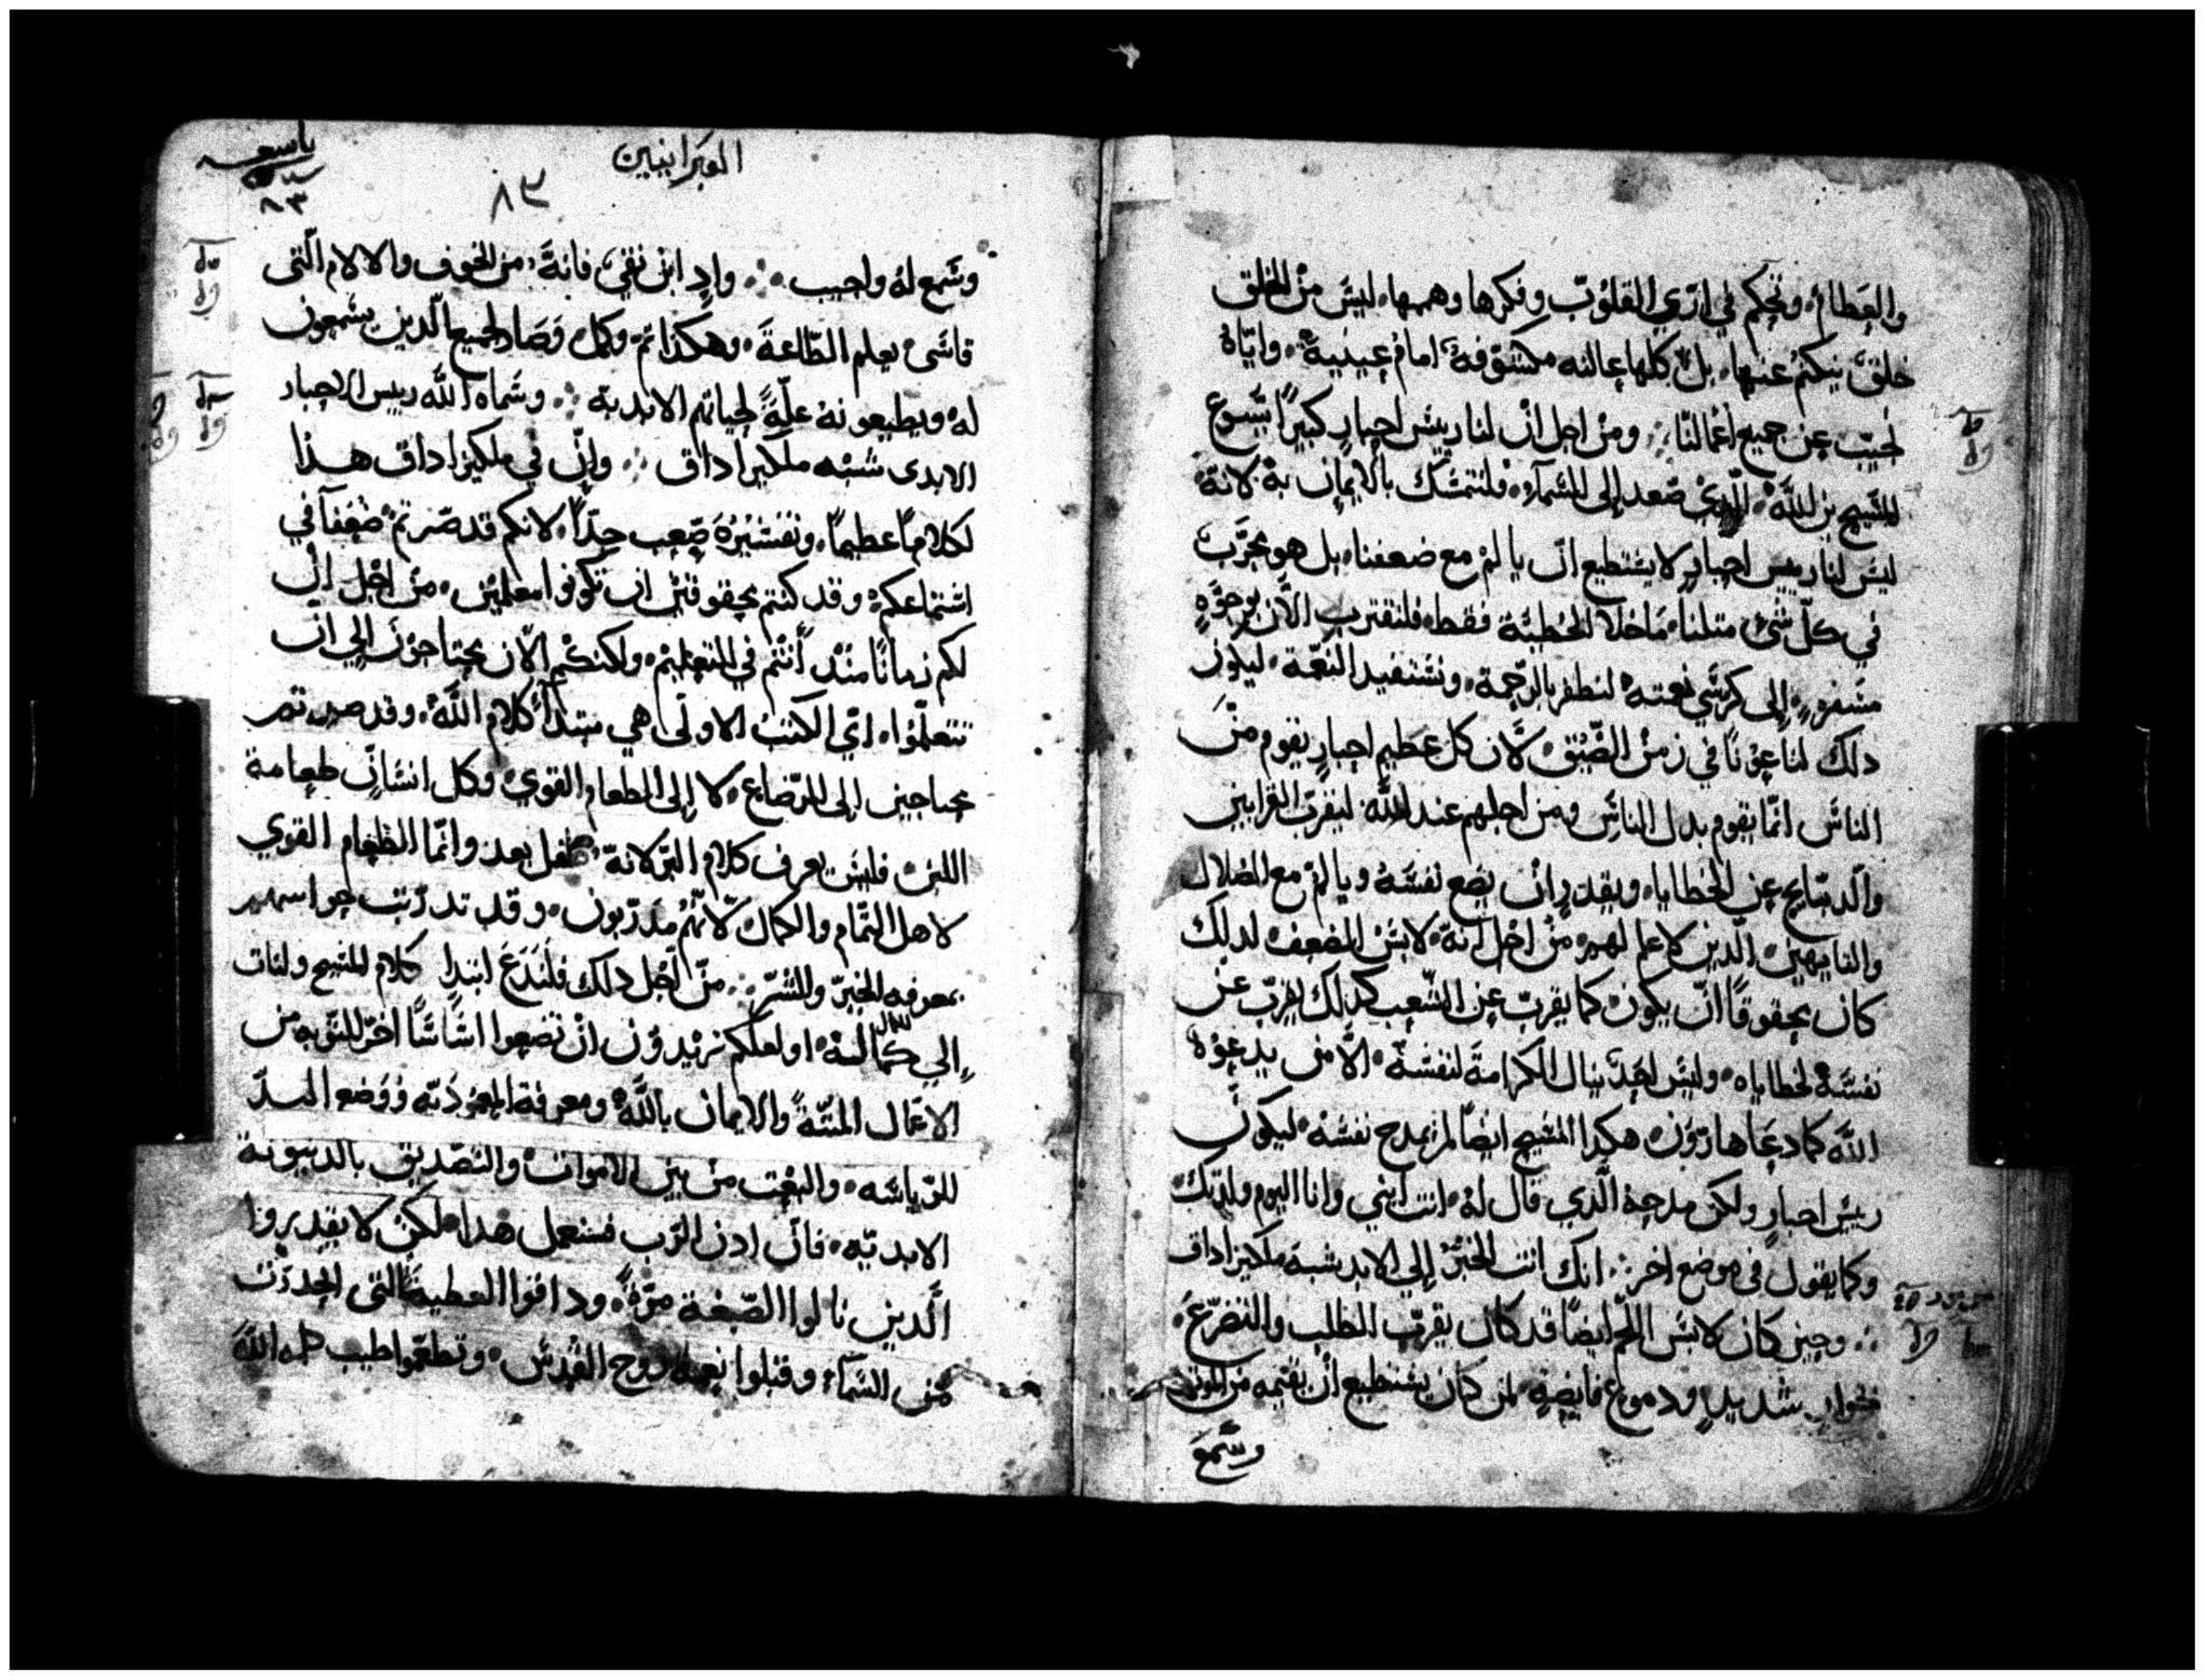 والعظام، وتحكم في ارّي القلوب وفكرها وهممها، ليس من الخلق
خلق ينكتم عنها، بل كلها عالنه مكشوفة امام عينية، واياه
نجيب عن جميع اعمالنا ومن اجل ان لنا رييس احبار كبيرا يسوع
المسيح بن الله، الذي صعد إلى السماء، فلنتمسك بالايمان به لانه
ليس لنا رييس احبار لا يستطيع ان يا لم مع ضعفنا، بل هو مجرب
في كل شئ متلنا، ما خلا الخطية فقط، فلنقترب الان بوجوه
مسفره إلى كرسي نعمته لنظفر بالرحمة، ونستفيد النعمة، ليكون
دلك لنا عونا في زمن الضيق لان كل عظيم احبار يقوم من
الناس انما يقوم بدل الناس ومن اجلهم عند الله ليقرب القرابين
والدبايح عن الخطايا، ويقدر ان يضع نفسه ويالم مع الضلال
والتايهين الدين لا علم لهم، من اجل انه لابس الضعف لدلك
كان محقوقا ان يكون كما يقرب عن الشعب كدلك يقرب عن
نفسه لخطاياه، وليس احد ينال الكرامة لنفسه، الا من يدعوه
الله كما دعا هارون، هكدا المسيح ايضا لم يمدح نفسه ليكون
رييس احبار ولكن مدحه الدي قال له، انت ابني وانا اليوم ولدتك
وكما يقول في موضع اخر انك انت الحبر إلى الابد شبه ملكيزاداق
وحين كان لابس اللحم ايضا قد كان يقرب الطلب والتضرع،
بخوار شديد ودموع فايضة لمن كان يستطيع ان يقيمه من الموت
وسمع
العبرانيين
٨٣
٨٣
وسمع له واجيب، واد ابن نقي فانه من الخوف والالام التى
قاسى يعلم الطاعة، وهكذا تم وكمل وصار لجميع الدين يسمعون
له ويطيعونه علة لحياتهم الابدية وسماه الله رييس الاحبار
الابدى شبه ملكيزاداق وان في ملكيزاداق هذا
لكلاما عظيما، وتفسيره صعب جدا، لانكم قد صرتم ضعفا في
استماعكم، وقد كنتم محقوقين ان تكونوا معلمين، من اجل ان
لكم زمانا مند انتم في التعليم، ولكنكم الان محتاجون الي ان
تتعلموا، اي الكتب الاولى هي مبتدا كلام الله، وقد صرتم
محتاجين إلى الرضاع، لا إلى الطعام القوي، وكل انسان طعامه
اللبن، فليس يعرف كلام البر لانه طفل بعد وانما الطعام القوي
لاهل التمام والكمال لانهم مدربون، وقد تدربت حواسهم
بمعرفه الخير والشر من اجل دلك فلندع ابتدا كلام المسيح ولنات
إلي كماله، او لعلكم تريدون ان تضعوا اساسا اخر للتوبه من
الاعمال الميته والايمان بالله ومعرفة المعموديه ووضع اليد
للرياسه، والبعت من بين الاموات، والتصديق بالدينونة
الابديه، فان ادن الرب فسنعمل هدا، لكن لا يقدروا
الدين نالوا الصبغة مرة، وداقوا العطية التى انحدرت
من السماء وقبلوا نعمة روح القدس، وتطعموا طيب كلمه الله